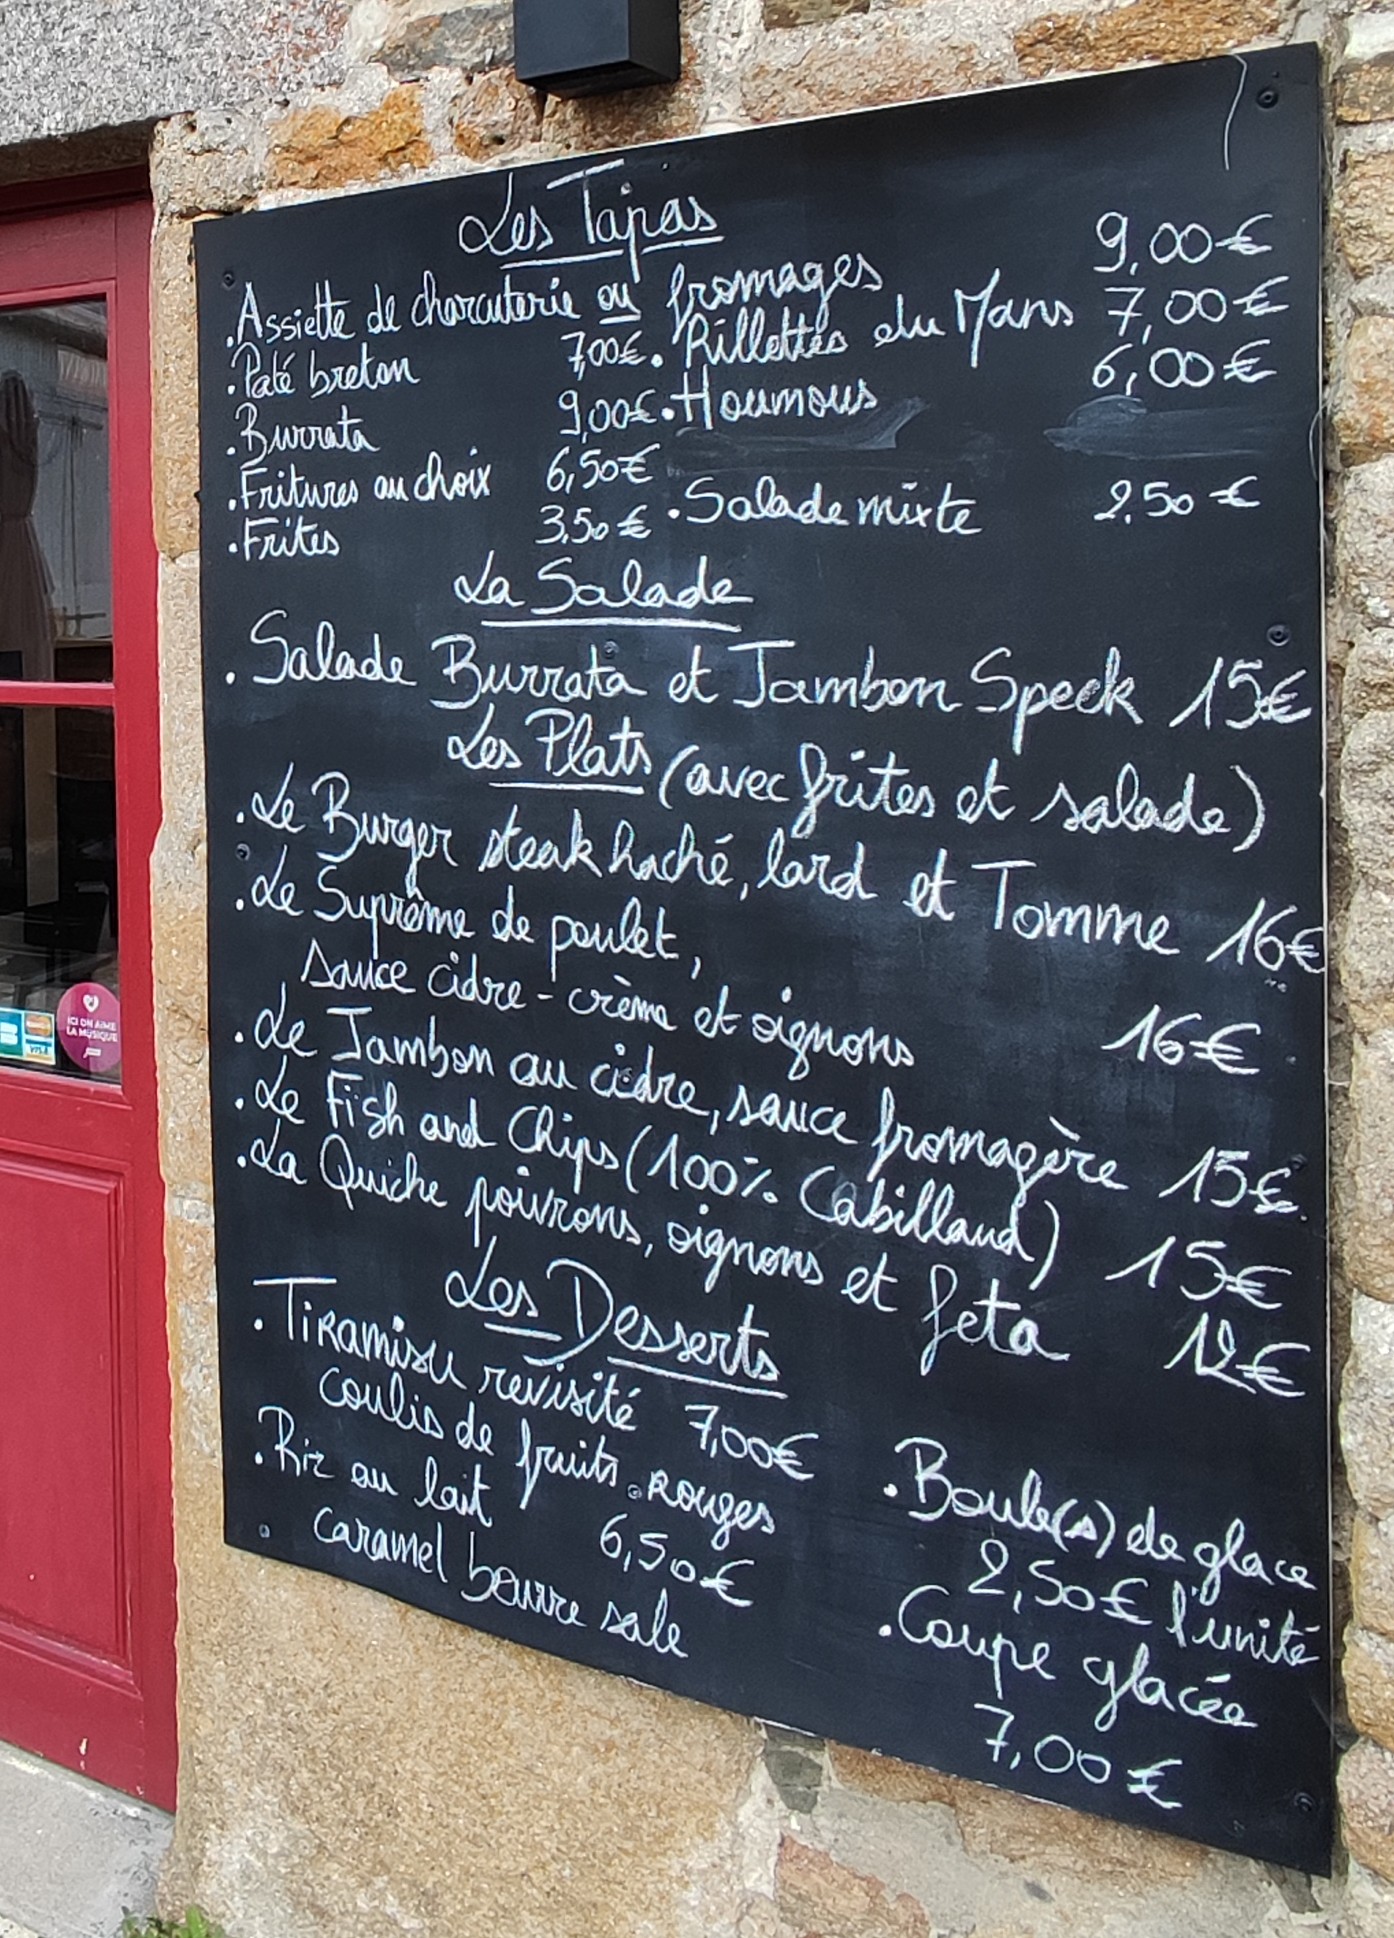 Les Tapas
. Assiette de charcuterie ou fromages 9,00€
. Paté breton 7,00€ . Rillettes du Mans 7,00€
. Burrata 9,00€ . Houmous 6,00€
. Fritures au choix 6,50€
. Frites 3,50€ . Salade mixte 2,50€
La Salade
. Salade Burrata et Jambon Speck 15€
Les Plats (avec frites et salade)
. Le Burger steak haché, lard et Tomme 16€
. Le Suprême de poulet,
sauce cidre - crème et oignons 16€
. Le Jambon au cidre, sauce fromagère 15€
. Le Fish and Chips (100% Cabillaud) 15€
. La Quiche poivrons, oignons et feta 12€
Les Desserts
. Tiramisu revisité 7,00€
coulis de fruits rouges
. Riz au lait 6,50€
caramel beurre sale
. Boule(s) de glace
2,50€ l'unité
. Coupe glacée
7,00€
ICI ON AIME
LA MUSIQUE
VISA